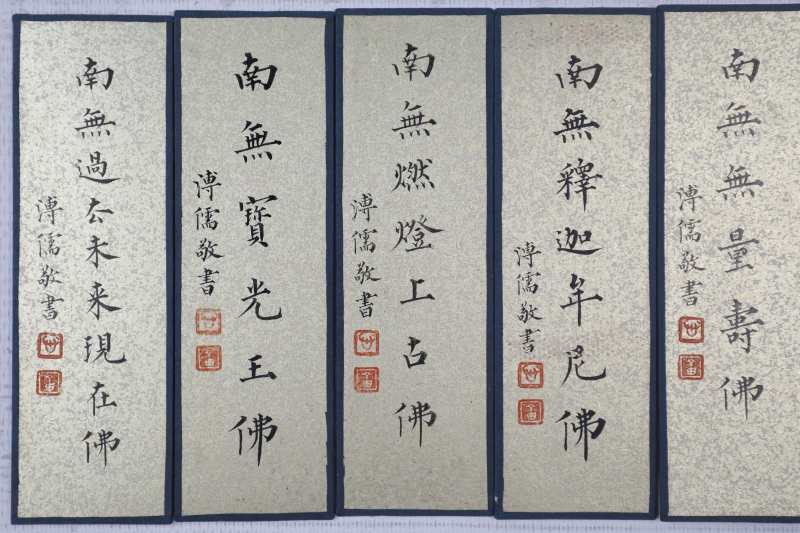 南無無量壽佛
溥儒敬書
南無釋迦牟尼佛
溥儒敬書
南無燃燈上古佛
溥儒敬書
南無寶光王佛
溥儒敬書
南無過去未来現在佛
溥儒敬書